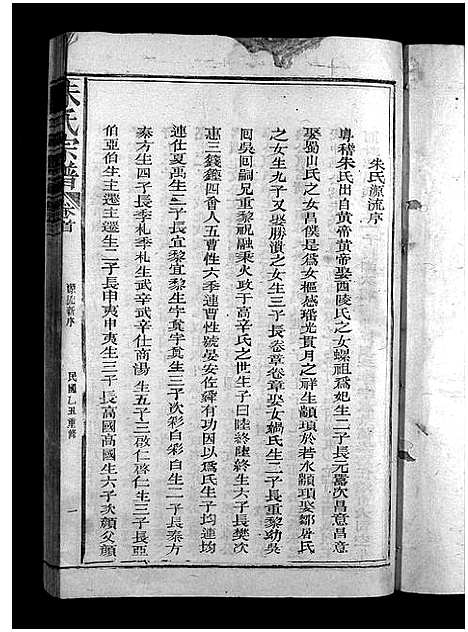 朱氏源流序
粤稽朱氏出自黄帝黄帝娶西陵氏之女嫘祖為妃生二子長元囂次昌意昌意
娶蜀山氏之女昌僕是為女樞感瑤光貫月之祥生顓頊於若水顓頊娶鄒屠氏
之女生九子又娶勝濆之女生三子長卷章卷章娶女媧氏生二子長重黎幼吳
回吳回嗣兄重黎祝融秉火政于高辛氏之世生子曰陸終陸終生六子長樊次
惠三籛鏗四會人五曹性六季連曹性號晏安佐緯有功因以為氏生子均連均
連仕夏禹生三子長宜黎宜黎生宇奠宇奠生三子次彩白彩白生二子長泰方
泰方生四子長季札季札生武辛武辛仕商湯生五子三啟仁啟仁生三子長亞
伯亞伯生主遷主遷生二子長申夷申夷生三子長高國高國生六子次顏父顏
朱氏宗譜
卷首
源流序
民國乙丑重修
一